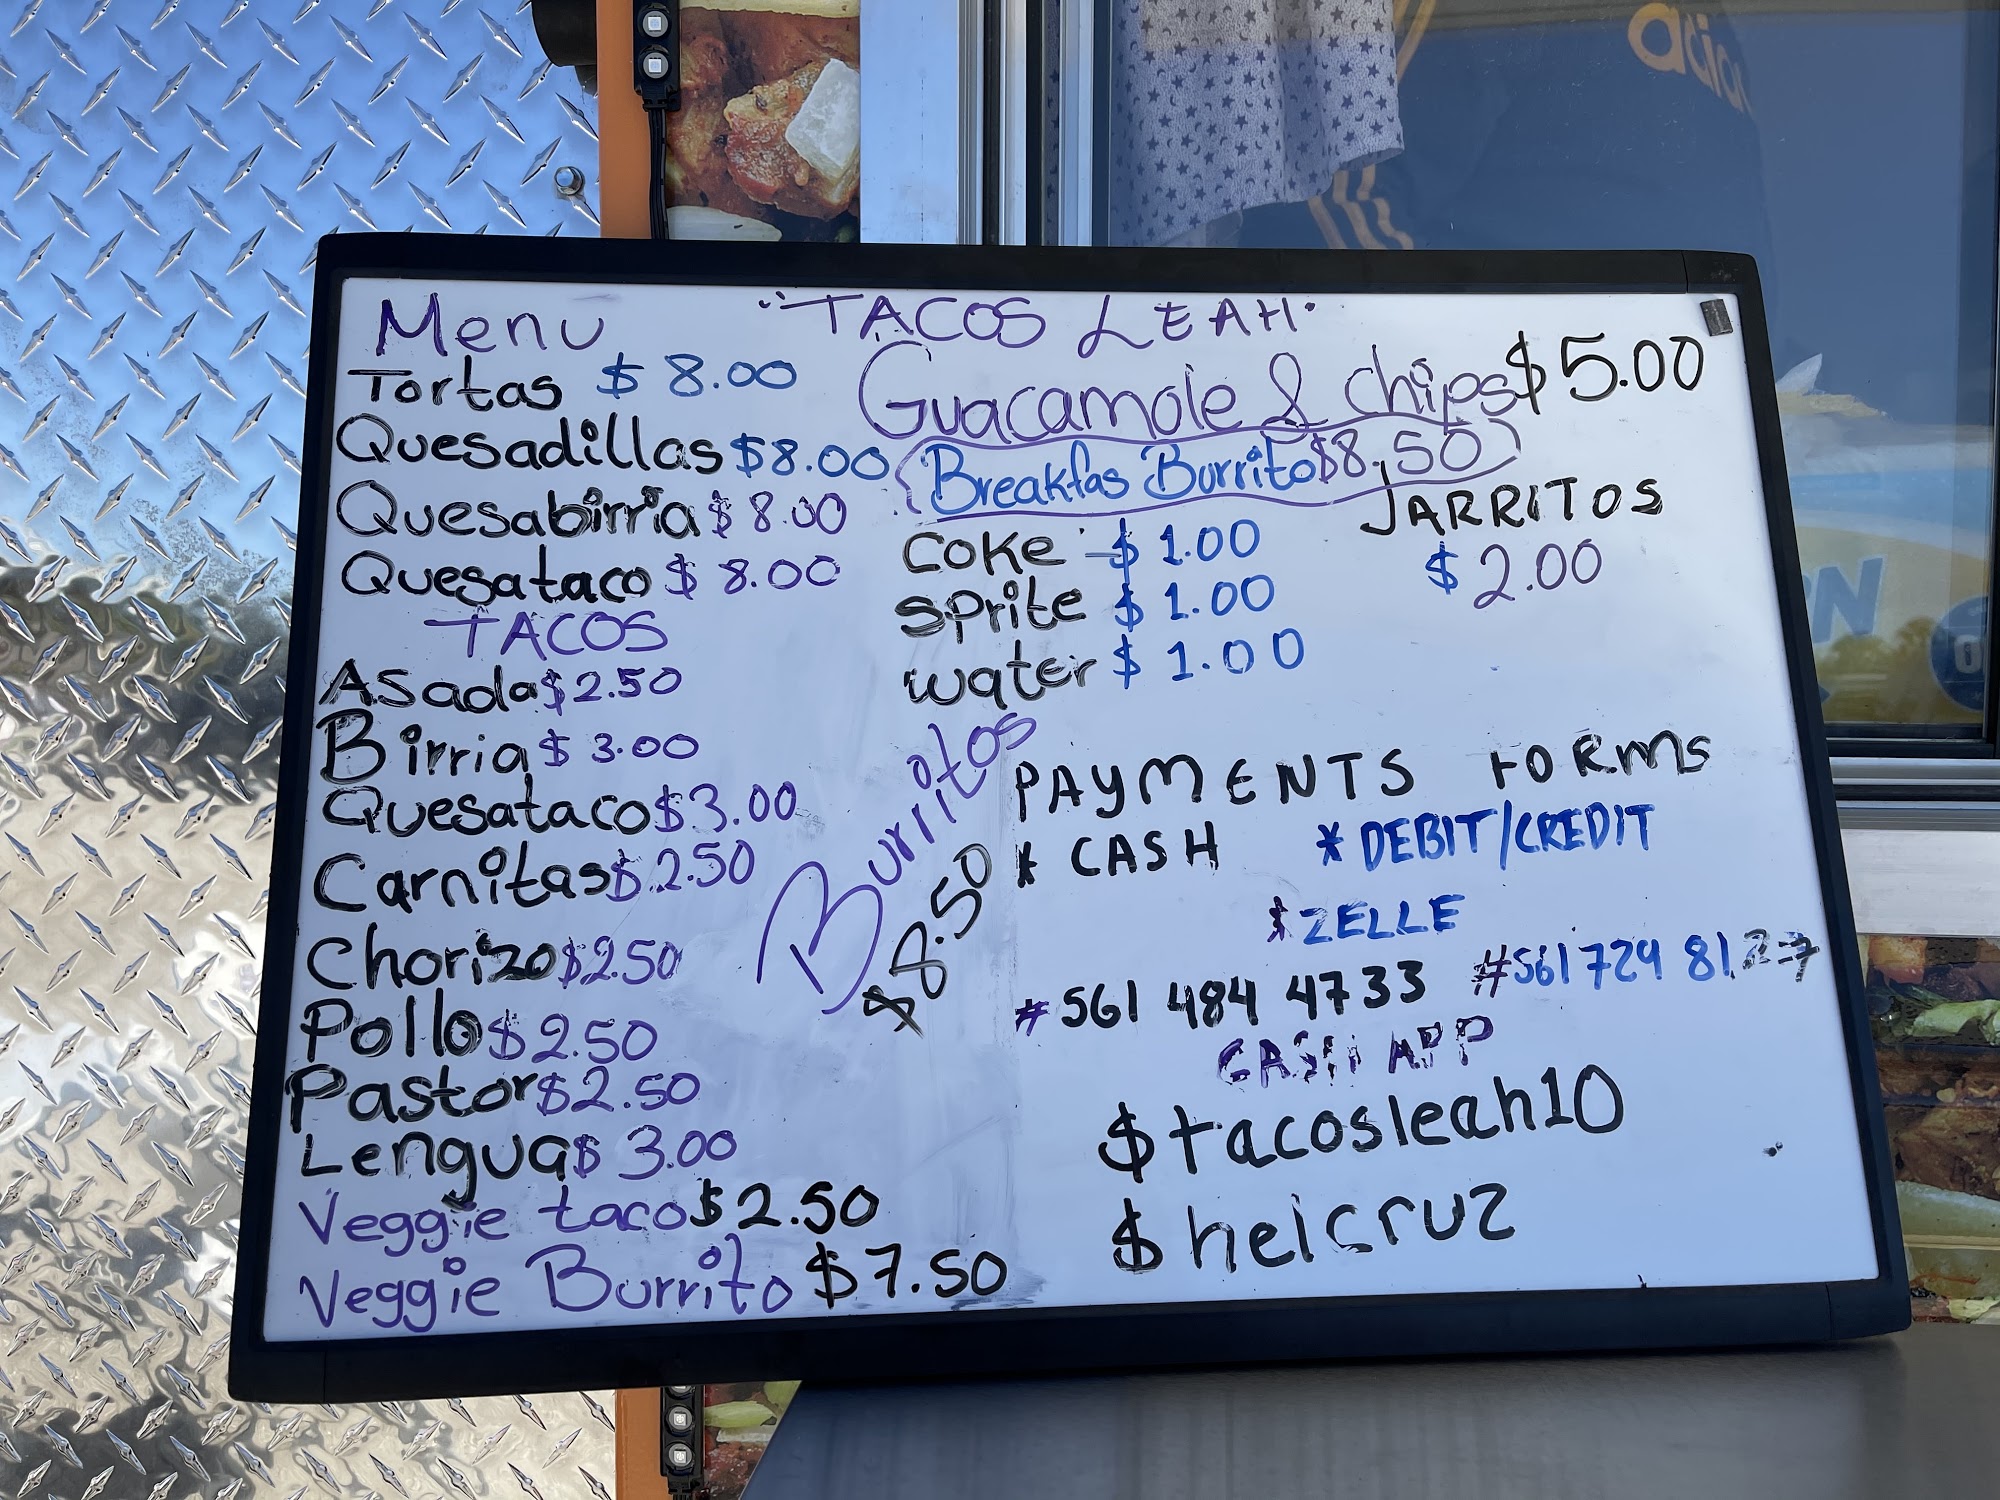 Menu
"TACOS LEAH"
Tortas $ 8.00
Quesadillas $8.00
Quesabirria $ 8.00
Quesataco $ 8.00
TACOS
Asada $2.50
Birria $ 3.00
Quesataco $3.00
Carnitas $2.50
Chorizo $2.50
Pollo $2.50
Pastor $2.50
Lengua $ 3.00
Veggie taco $2.50
Veggie Burrito $7.50
Guacamole & chips $5.00
Breakfas Burrito $8.50
Coke $ 1.00
Sprite $ 1.00
water $ 1.00
JARRITOS
$ 2.00
Burritos
$8.50
PAYMENTS FORMS
* CASH * DEBIT/CREDIT
* ZELLE
# 561 484 4733 #561 729 8127
CASH APP
$tacosleah10
$helcruz